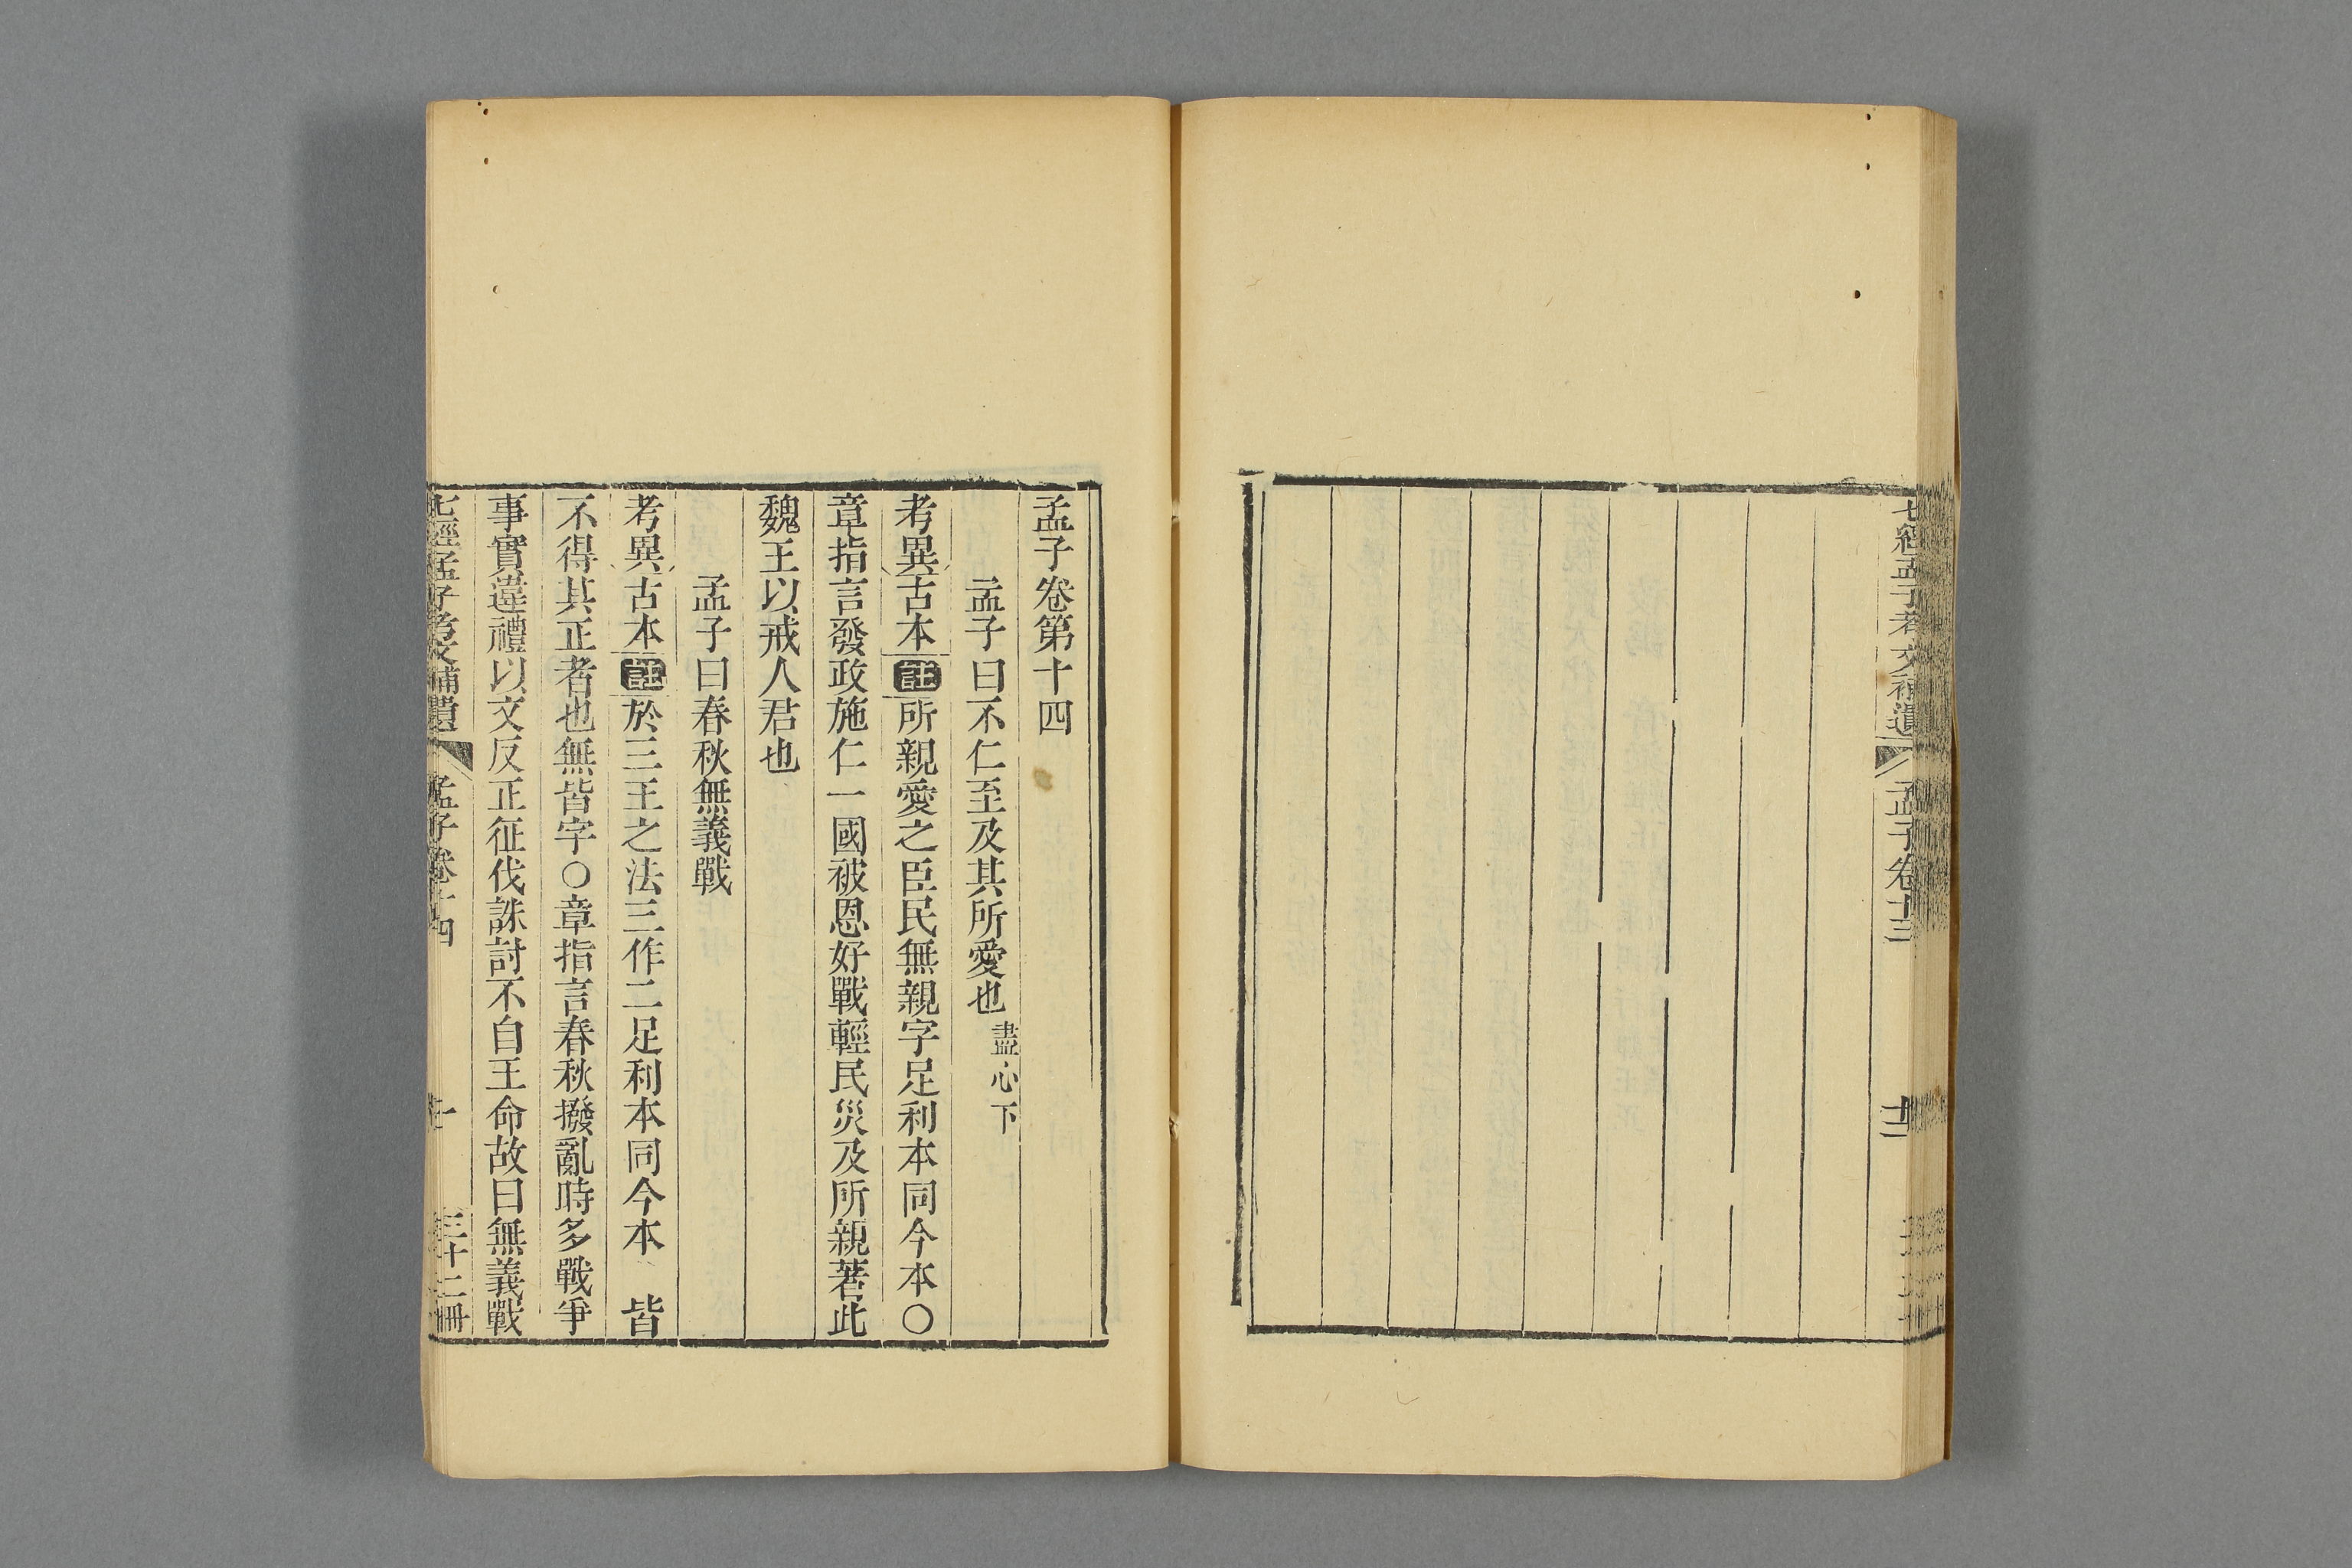 七經孟子考文補遺 孟子卷十三
孟子卷第十四
孟子曰不仁至及其所愛也 盡心下
考異古本註所親愛之臣民無親字足利本同今本〇
章指言發政施仁一國被恩好戰輕民災及所親著此
魏王以戒人君也
孟子曰春秋無義戰
考異古本註於三王之法三作二足利本同今本 皆
不得其正者也無皆字〇章指言春秋撥亂時多戰爭
事實違禮以文反正征伐誅討不自王命故曰無義戰
七經孟子考文補遺 孟子卷十四 一 三十二冊